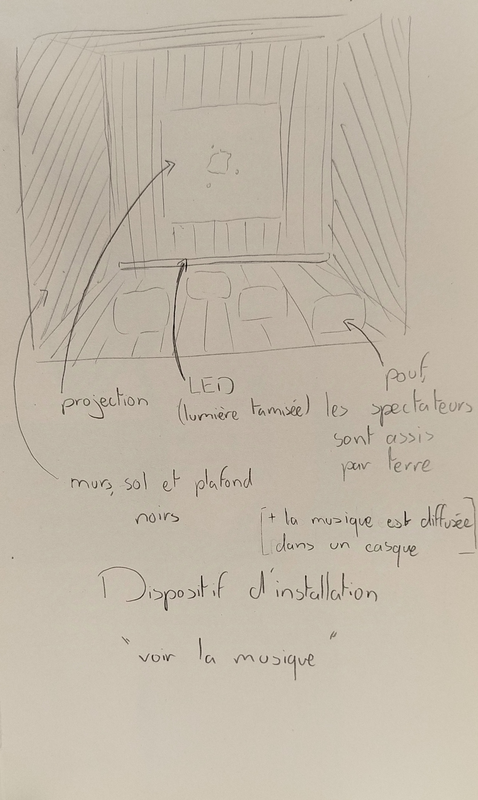 projection
LED
(lumière tamisée)
pouf,
les spectateurs
sont assis
par terre
murs, sol et plafond
noirs
[+ la musique est diffusée
dans un casque]
Dispositif d'installation
"voir la musique"